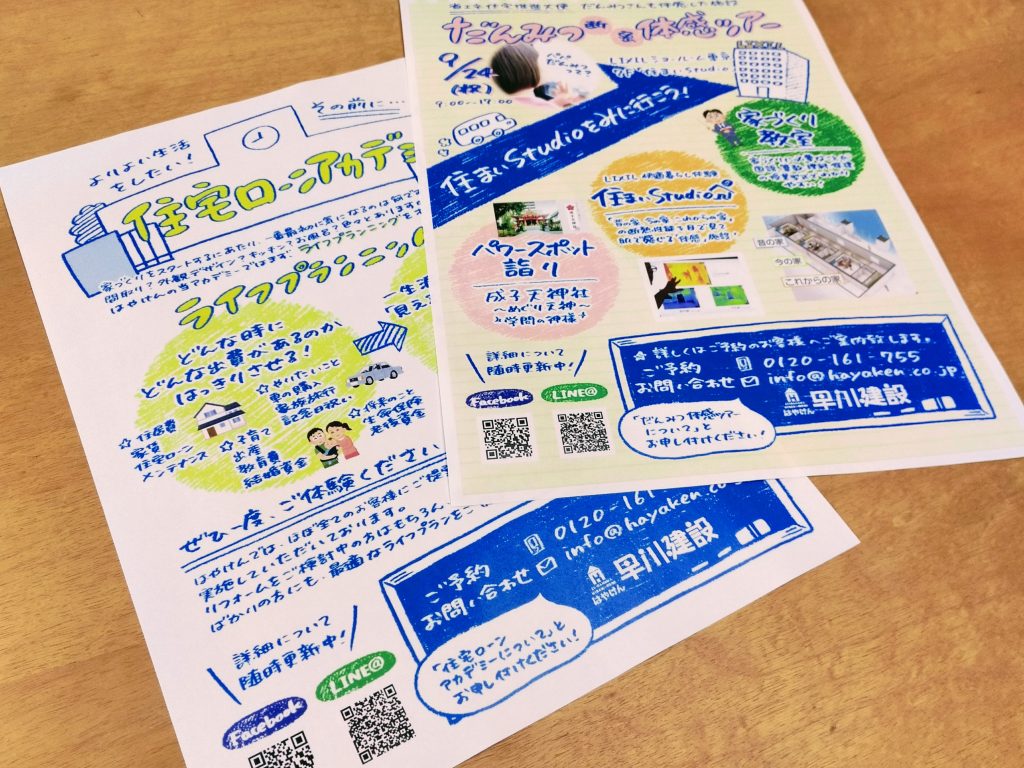 省エネ住宅推進大使 だんみつさんも体感した施設
だんみつ断密体感ツアー
9/24
(祝)
9:00〜17:00
LIXILショールーム東京
7F 住まいStudio
LIXIL
住まいStudioをみに行こう!
家づくり
教室
LIXIL 快適暮らし体験
住まいStudio
「昔の家、今の家、これからの家」
の断熱性能を目で見て
肌で感じる体感施設!
パワースポット
詣り
成子天神社
〜めぐり天神〜
学問の神様
昔の家
今の家
これからの家
詳細について
随時更新中!
Facebook
LINE@
☆詳しくはご予約のお客様へご案内致します。
ご予約
お問い合わせ
0120-161-755
info@hayaken.co.jp
はやけん
早川建設
「だんみつ体感ツアー
について」と
お申し付けください!
よりよい生活
をしたい!
その前に…
住宅ローンアカデミ
家づくりをスタートするにあたり、一番最初に気になるのは何です
間取り?外観デザイン?キッチン?お風呂?色々とあります
はやけんの当アカデミーではまず、ライフプランニングをオ
ライフプランニング
どんな時に
どんな出費があるのか
はっきりさせる!
☆住居費
家賃
住宅ローン
メンテナンス
☆子育て
出産
教育費
結婚資金
☆やりたいこと
車の購入
家族旅行
記念日祝い
☆将来のこと
生命保険
老後資金
一生涯
「見え
ぜひ一度、ご体験ください
はやけんでは、ほぼ全てのお客様にご提
実施していただいております。
リフォームをご検討中の方はもちろん、
ばかりの方にも、最適なライフプランをご
詳細について
随時更新中!
Facebook
LINE@
ご予約
お問い合わせ
0120-161
info@hayaken.co
はやけん
早川建設
「住宅ローン
アカデミーについて」と
お申し付けください!